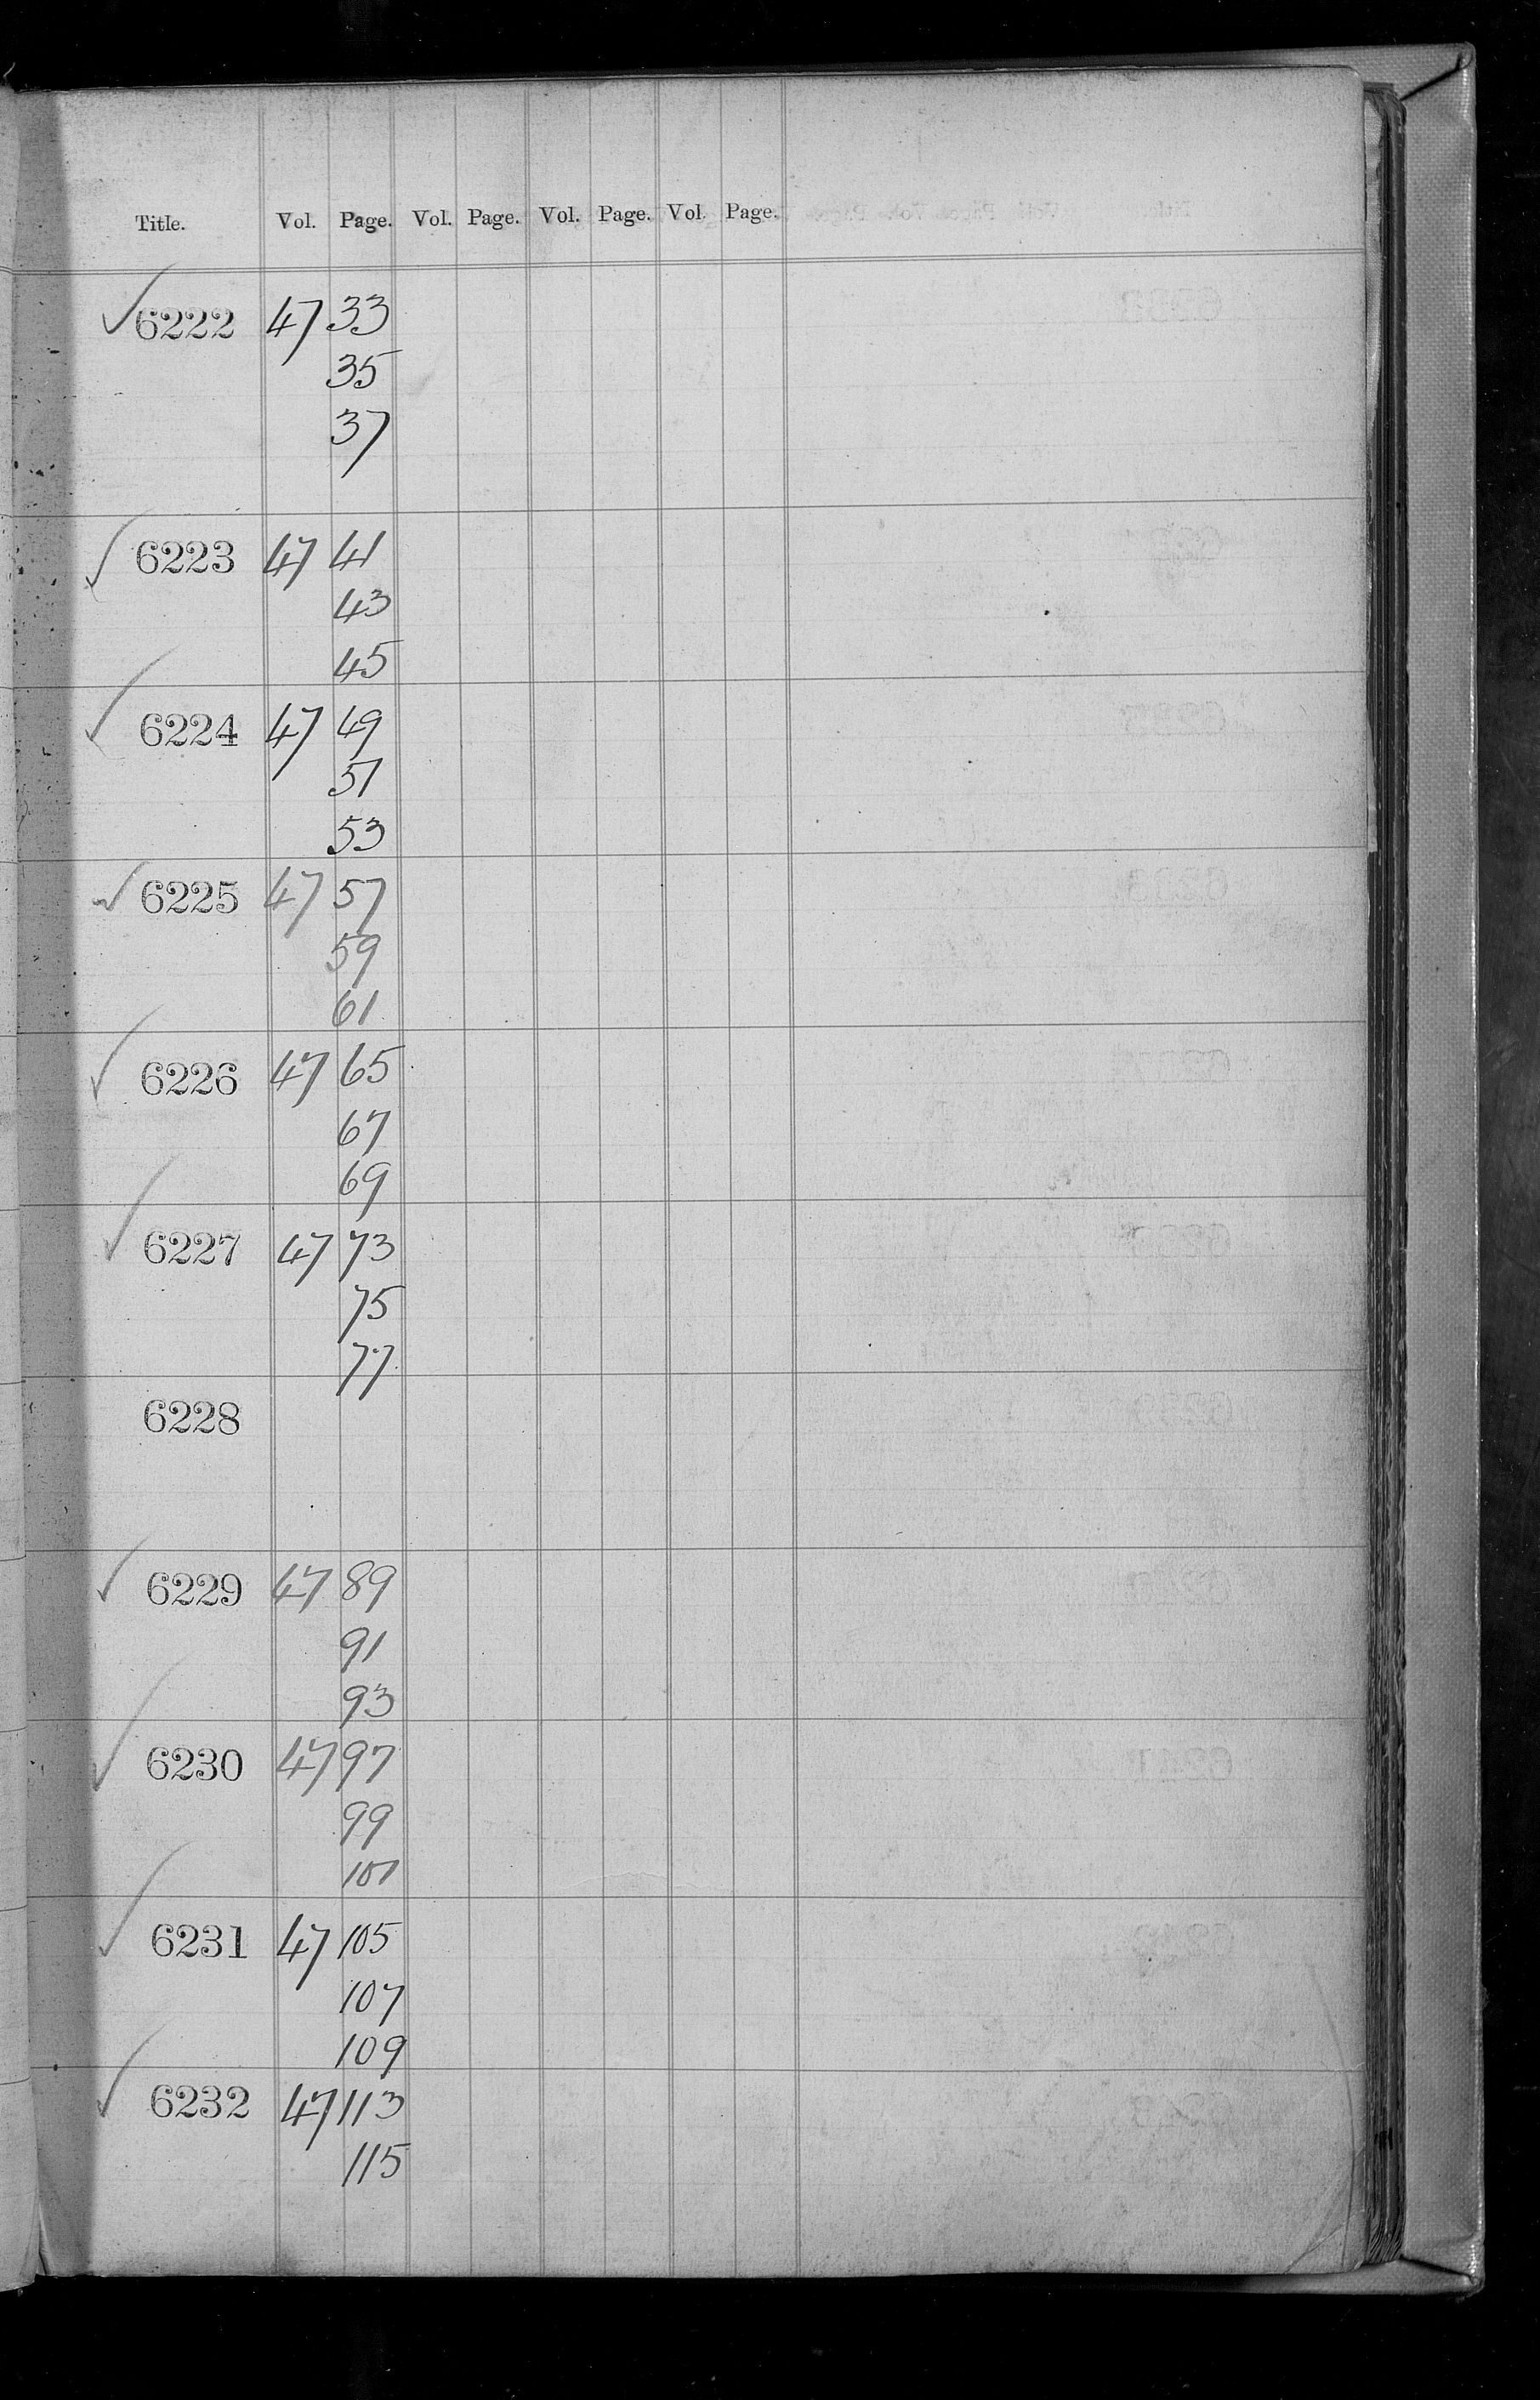 Title. Vol. Page. Vol. Page. Vol. Page. Vol. Page.
6222 47 33
35
37
6223 47 41
43
45
6224 47 49
51
53
6225 47 57
59
61
6226 47 65
67
69
6227 47 73
75
77
6228
6229 47 89
91
93
6230 47 97
99
101
6231 47 105
107
109
6232 47 113
115